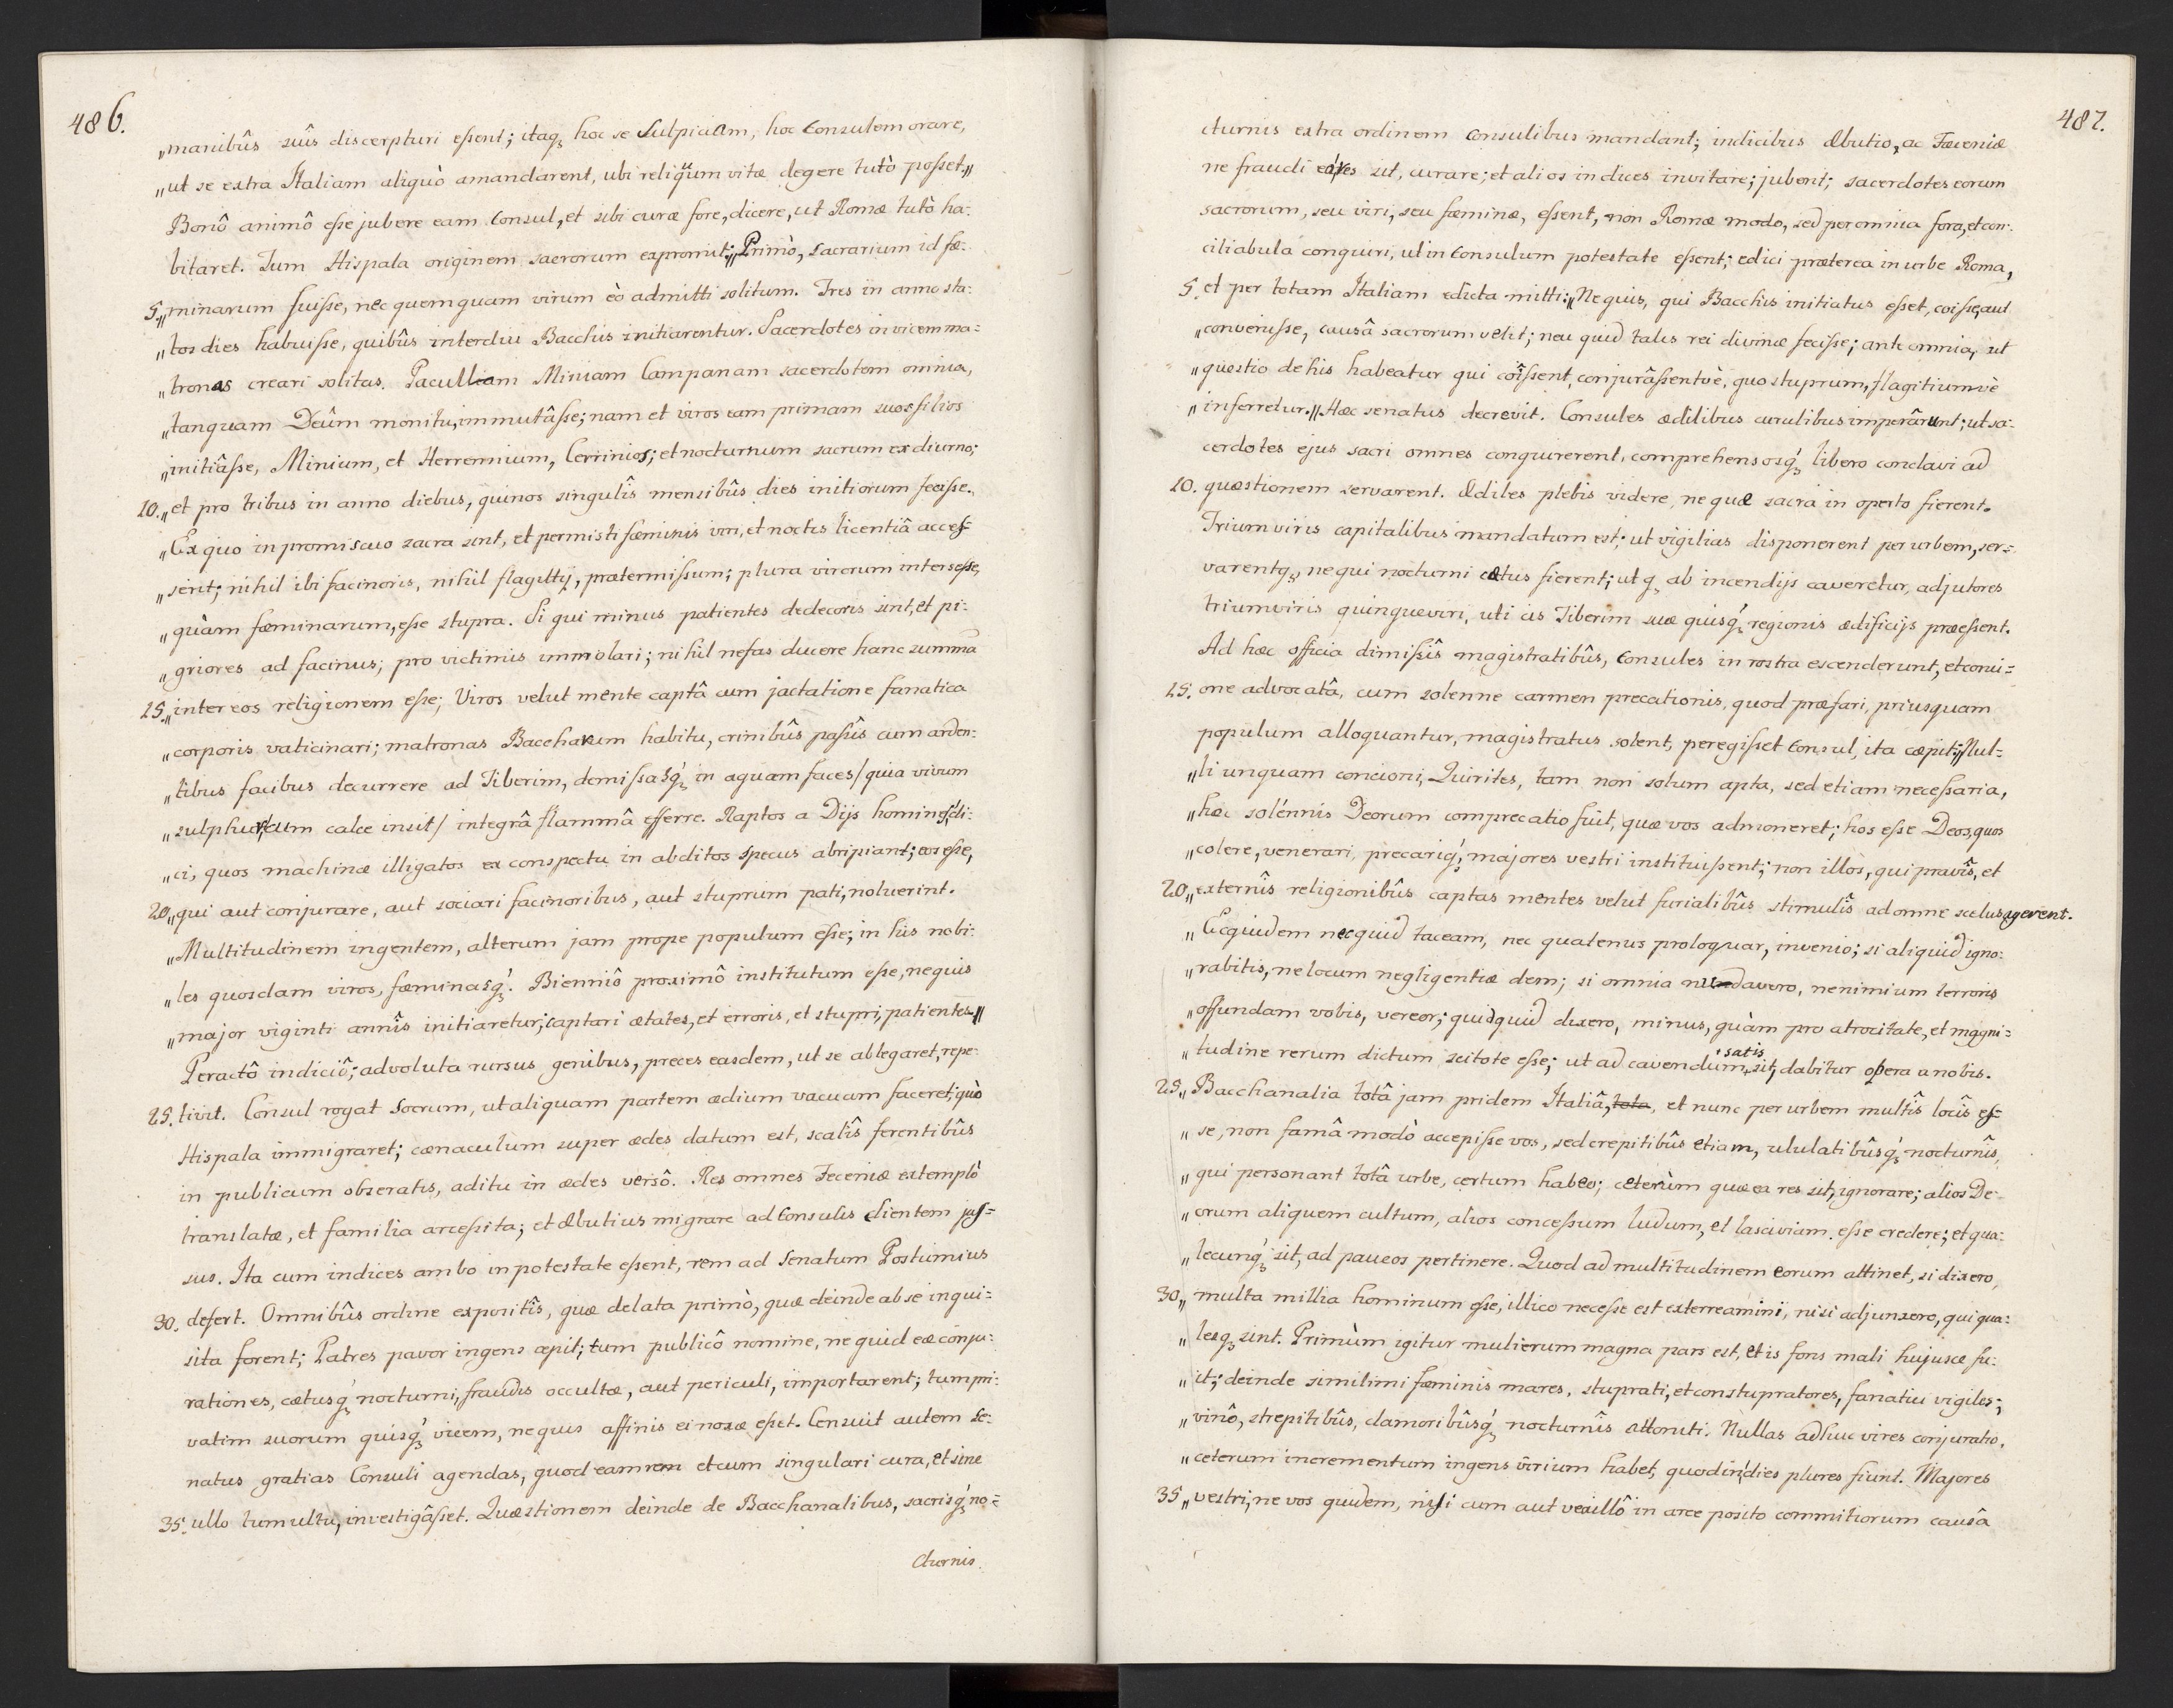 486.
„manibûs suîs discerpturi eſsent; itaq₃ hoc se Sulpiciam, hoc Consulem orare,
„ut se extra Italiam aliquò amandarent, ubi reliquum vitæ degere tutò poſset.„
Bonô animô eſse jubere eam Consul, et sibi curæ fore, dicere, ut Romæ tutò ha-
bitaret. Tum Hispala originem sacrorum expromit: „Primò, sacrarium id fæ-
5. „minarum fuiſse, nec quemquam virum eò admitti solitum. Tres in anno sta-
„tos dies habuiſse, quibûs interdiu Bacchis initiarentur. Sacerdotes invicem ma-
„tronas creari solitas. Paculliam Miniam Campanam sacerdotem omnia,
„tanquam Deûm monitu, immutâſse; nam et viros eam primam suos filios
„initiâſse, Minium, et Herrennium, Cerrinios; et nocturnum sacrum ex diurno;
10. „et pro tribus in anno diebus, quinos singulîs mensibûs dies initiorum feciſse.
„Ex quo in promiscuo sacra sint, et permisti fœminis viri, et noctis licentiâ acceſ-
„serit; nihil ibi facinoris, nihil flagitij, prætermiſsum; plura virorum inter sese,
„quàm fæminarum, eſse stupra. Si qui minus patientes dedecoris sint, et pi-
„griores ad facinus; pro victimis immolari; nihil nefas ducere hanc summã
15. „inter eos religionem eſse; Viros velut mente captâ cum jactatione fanatica
„corporis vaticinari; matronas Baccharum habitu, crinibûs paſsîs cum arden-
„tibus facibus decurrere ad Tiberim, demiſsasq́₃ in aquam faces / quia vivum
„sulphur cum calce insit / integrâ flammâ efferre. Raptos a Dijs homines di-
„ci, quos machinæ illigatos ex conspectu in abditos specus abripiant; eos eſse,
20. „qui aut conjurare, aut sociari facinoribus, aut stuprum pati, noluerint.
„Multitudinem ingentem, alterum jam prope populum eſse; in his nobi-
„les quosdam viros, fæminasq́₃. Bienniô proximô institutum eſse, nequis
„major viginti annîs initiaretur; captari ætates, et erroris, et stupri, patientes.„
Peractô indiciô; advoluta rursus genibus, preces easdem, ut se ablegaret, repe-
25. tivit. Consul rogat Socrum, ut aliquam partem ædium vacuam faceret; quò
Hispala immigraret; cænaculum super ædes datum est, scalîs ferentibûs
in publicum obseratis, aditu in ædes versô. Res omnes Feceniæ extemplò
translatæ, et familia arceſsita; et Æbutius migrare ad Consulis clientem juſ-
sus. Ita cum indices ambo in potestate eſsent, rem ad Senatum Postumius
30. defert. Omnibûs ordine expositîs, quæ delata primò, quæ deinde ab se inqui-
sita forent; Patres pavor ingens cepit; tum publicô nomine, ne quid eæ conju-
rationes, cætusq́₃ nocturni, fraudis occultæ, aut periculi, importarent; tum pri-
vatim suorum quisq́₃ vicem, ne quis affinis ei noxæ eſset. Censuit autem Se-
natus gratias Consuli agendas, quod eam rem et cum singulari cura, et sine
35. ullo tumultu, investigâſset. Quæstionem deinde de Bacchanalibus, sacrisq́₃ no-
cturnis.
487.
cturnis extra ordinem Consulibus mandant; indicibus Æbutio, ac Feceniæ
ne fraudi ea res sit, curare; et alios indices invitare; jubent; sacerdotes eorum
sacrorum, seu viri, seu fæminæ, eſsent, non Romæ modo, sed per omnia fora, et con-
ciliabula conquiri, ut in Consulum potestate eſsent; edici præterea in urbe Roma,
5. et per totam Italiam edicta mitti: „Nequis, qui Bacchis initiatus eſset, coiſse, aut
„conveniſse, causâ sacrorum velit; neu quid talis rei divinæ feciſse; ante omnia, ut
„quæstio de his habeatur qui coîſsent, conjurâſsentvè, quo stuprum, flagitiumvè
„inferretur.„ Hæc senatus decrevit. Consules ædilibus curulibus imperârunt; ut sa-
cerdotes ejus sacri omnes conquirerent, comprehensosq́₃ libero conclavi ad
10. quæstionem servarent. Ædiles plebis videre, ne quæ sacra in operto fierent.
Triumviris capitalibus mandatum est; ut vigilias disponerent per urbem, ser-
varentq₃, ne qui nocturni cætus fierent; utq₃ ab incendijs caveretur, adjutores
triumviris quinqueviri, uti cis Tiberim suæ quisq́₃ regionis ædificijs præeſsent.
Ad hæc officia dimiſsîs magistratibûs, Consules in rostra escenderunt, et conci-
15. one advocatâ, cum solenne carmen precationis, quod præfari, priusquam
populum alloquantur, magistratus solent, peregiſset Consul, ita cæpit: „Nul-
„li unquam concioni, Quirites, tam non solum apta, sed etiam neceſsaria,
„hæc solénnis Deorum comprecatio fuit, quæ vos admoneret; hos eſse Deos, quos
„colere, venerari, precariq́₃, majores vestri instituiſsent; non illos, qui pravîs, et
20. „externîs religionibûs captas mentes velut furialibûs stimulîs ad omne scelus agerent.
„Ecquidem nec quid taceam, nec quatenus proloquar, invenio; si aliquid igno-
„rabitis, ne locum negligentiæ dem; si omnia nudavero, ne nimium terroris
„offundam vobis, vereor; quidquid dixero, minus, quàm pro atrocitate, et magni-
„tudine rerum dictum scitote eſse; ut ad cavendum satis sit, dabitur opera a nobis.
25. „Bacchanalia totâ jam pridem Italiâ, tota, et nunc per urbem multîs locîs eſ-
„se, non famâ modò accepiſse vos, sed crepitibûs etiam, ululatibûsq́₃ nocturnîs,
„qui personant totâ urbe, certum habeo; ceterùm quæ ea res sit, ignorare; alios De-
„orum aliquem cultum, alios conceſsum ludum, et lasciviam, eſse credere; et qua-
„lecunq́₃ sit, ad paucos pertinere. Quod ad multitudinem eorum attinet, si dixero,
30. „multa millia hominum eſse, illico neceſse est exterreamini, nisi adjunxero, qui qua-
„lesq₃ sint. Primùm igitur mulierum magna pars est, et is fons mali hujusce fu-
„it; deinde simillimi fæminis mares, stuprati, et constupratores, fanatici vigiles;
„vinô, strepitibûs, clamoribûsq́₃ nocturnîs attoniti. Nullas adhuc vires conjuratio,
„ceterum incrementum ingens virium habet, quod in dies plures fiunt. Majores
35. „vestri, ne vos quidem, nisi cum aut vexillô in arce posito commitiorum causâ